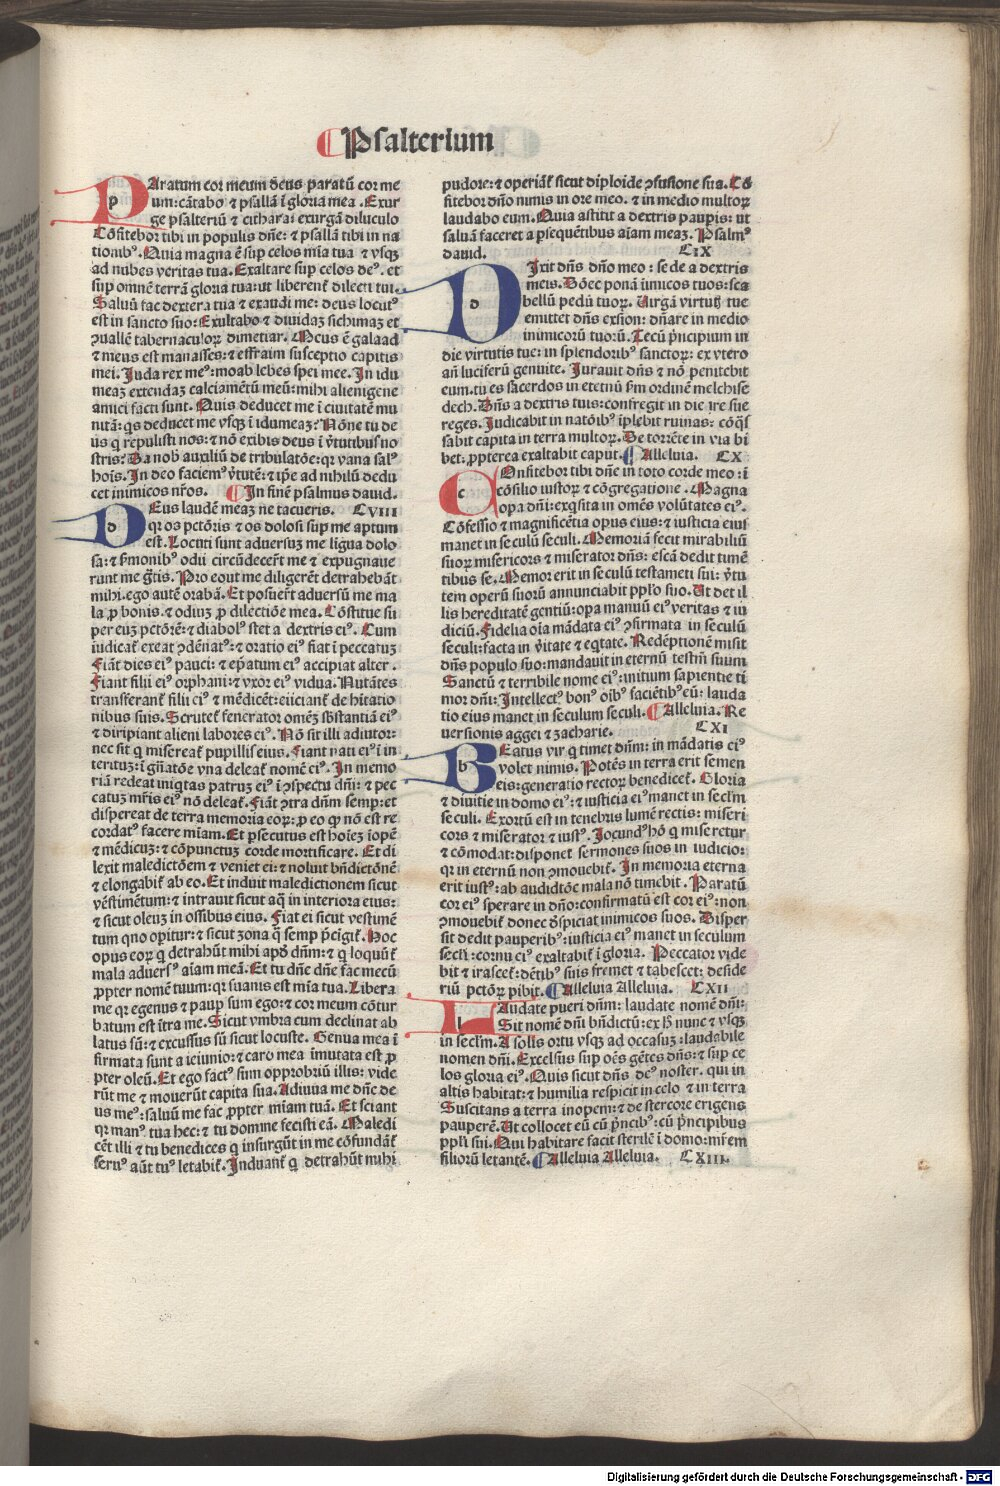 Psalterium
PAratum cor meum deus paratū cor me
um: cātabo ⁊ psallā ī gloria mea. Exur
ge psalteriū ⁊ cithara: exurgā diluculo
Cōfitebor tibi in populis dn̄e: ⁊ psallā tibi in na
tionibꝰ. Quia magna ē suꝑ celos mīa tua ⁊ vsqꝫ
ad nubes veritas tua. Exaltare suꝑ celos deꝰ. et
suꝑ omnē terrā gloria tua: ut liberent̄ dilecti tui.
Saluū fac dextera tua ⁊ exaudi me: deus locutꝰ
est in sancto suo: Exultabo ⁊ diuidaꝫ sichimaꝫ et
ꝯuallē tabernaculoꝝ dimetiar. Meus ē galaad
⁊ meus est manasses: ⁊ effraim susceptio capitis
mei. Juda rex meꝰ: moab lebes spei mee. In idu
meaꝫ extendaꝫ calciamētū meū: mihi alienigene
amici facti sunt. Quis deducet me ī ciuitatē mu
nitā: qs deducet me vsqꝫ ī idumeaꝫ? Nōne tu de
us q̄ repulisti nos: ⁊ nō exibis deus ī v̄tutibus no
stris? Da nob̄ auxiliū de tribulatōe: qꝛ vana salꝰ
hoīs. In deo faciemꝰ v̄tutē: ⁊ ip̄e ad nihilū dedu
cet inimicos nr̄os. In finē psalmus dauid.
DEus laudē meaꝫ ne tacueris. CVIII
qꝛ os pctōris ⁊ os dolosi suꝑ me aptum
est. Locuti sunt aduersuꝫ me līgua dolo
sa: ⁊ s̄monibꝰ odii circūdecer̄t me ⁊ expugnaue
runt me gr̄tis. Pro eo ut me diligerēt detrahebāt
mihi. ego autē orabā. Et posuer̄t aduersū me ma
la ꝓ bonis. ⁊ odiuꝫ ꝓ dilectiōe mea. Cōstitue su
per euꝫ pctōrē: ⁊ diabolꝰ stet a dextris eiꝰ. Cum
iudicat̄ exeat ꝯdēnatꝰ: ⁊ oratio eiꝰ fiat ī peccatuꝫ
Fiāt dies eiꝰ pauci: ⁊ ep̄atum eiꝰ accipiat alter.
Fiant filii eiꝰ orphani: ⁊ vxor eiꝰ vidua. Nutātes
transferant̄ filii eiꝰ ⁊ mēdicēt: eiiciant̄ de hitatio
nibus suis. Scrutet̄ fenerator omēꝫ sb̄stantiā eiꝰ
⁊ diripiant alieni labores eiꝰ. Nō sit illi adiutor:
nec sit q̄ misereat̄ pupillis eius. Fiant nati eiꝰ ī in
terituꝫ: ī gn̄atōe vna deleat̄ nomē eiꝰ. In memo
riā redeat iniqtas patruꝫ eiꝰ ī ꝯspectu dn̄i: ⁊ pec
catuꝫ mr̄is eiꝰ nō deleat̄. Fiāt ꝯtra dn̄m semꝑ: et
dispereat de terra memoria eoꝝ: ꝓ eo q̄ nō est re
cordatꝰ facere mīam. Et ꝑsecutus est hoīeꝫ īopē
⁊ mēdicuꝫ: ⁊ cōpunctuꝫ corde mortificare. Et di
lexit maledictōem ⁊ veniet ei: ⁊ noluit bn̄dictōnē
⁊ elongabit̄ ab eo. Et induit maledictionem sicut
vēstimētum: ⁊ intrauit sicut aq̄ in interiora eius:
⁊ sicut oleuꝫ in ossibus eius. Fiat ei sicut vestimē
tum quo oꝑitur: ⁊ sicut zona q̄ semꝑ p̄cīgit̄. Hoc
opus eoꝝ q̄ detrahūt mihi apd̄ dn̄m: ⁊ q̄ loquūt̄
mala aduersꝰ aīam meā. Et tu dn̄e dn̄e fac mecū
ꝓpter nomē tuum: qꝛ suauis est mīa tua. Libera
me qꝛ egenus ⁊ pauꝑ sum ego: ⁊ cor meum cōtur
batum est īt̄ra me. Sicut vmbra cum declinat ab
latus sū: ⁊ excussus sū sicut locuste. Genua mea ī
firmata sunt a ieiunio: ⁊ caro mea imutata est ꝓ
pter oleū. Et ego factꝰ sum opprobriū illis: vide
rūt me ⁊ mouerūt capita sua. Adiuua me dn̄e de
us meꝰ: saluū me fac ꝓpter mīam tuā. Et sciant
qꝛ manꝰ tua hec: ⁊ tu domine fecisti eā. Maledi
cēt illi ⁊ tu benedices q̄ insurgūt in me cōfundāt̄
seruꝰ aūt tuꝰ letabit̄. Induant̄ q̄ detrahūt mihi
pudore: ⁊ operiāt̄ sicut diploide ꝯfusione sua. Cō
fitebor dn̄o nimis in ore meo. ⁊ in medio multoꝝ
laudabo eum. Quia astitit a dextris pauꝑis: ut
saluā faceret a ꝑsequētibus aīam meaꝫ. Psalmꝰ
dauid. CIX
DIxit dn̄s dn̄o meo: sede a dextris
meis. Dōec ponā inimicos tuos: sca
bellū pedū tuoꝝ. Uirgā virtutꝭ tue
emittet dn̄s exsion: dn̄are in medio
inimicorū tuorū. Tecū p̄ncipium in
die virtutis tue: in splendoribꝰ sanctoꝝ: ex vtero
an̄ luciferū genui te. Jurauit dn̄s ⁊ nō penitebit
eum. tu es sacerdos in eternū sm̄ ordinē melchise
dech. Dn̄s a dextris tuis: confregit in die ire sue
reges. Judicabit in natōibꝰ īplebit ruinas: cōq̄s
sabit capita in terra multoꝝ. De torrēte in via bi
bet: ꝓpterea exaltabit caput. Alleluia. CX
COnfitebor tibi dn̄e in toto corde meo: ī
cōsilio iustoꝝ ⁊ cōgregatione. Magna
opa dn̄i: exq̄sita in omēs volūtates eiꝰ.
Cōfessio ⁊ magnificētia opus eius: ⁊ iusticia eius
manet in seculū seculi. Memoriā fecit mirabiliū
suoꝝ misericors ⁊ miserator dn̄s: escā dedit timē
tibus se. Memor erit in seculū testamēti sui: v̄tu
tem operū suorū annunciabit pplo suo. Ut det il
lis hereditatē gentiū: opa manuū eiꝰ veritas ⁊ iu
diciū. Fidelia oīa mādata eiꝰ ꝯfirmata in seculū
seculi: facta in v̄itate ⁊ eqtate. Redēptionē misit
dn̄s populo suo: mandauit in eternū testm̄ suum
Sanctū ⁊ terribile nomē eiꝰ: initium sapientie ti
mor dn̄i: Intellectꝰ bonꝰ oībꝰ faciētibꝰ eū: lauda
tio eius manet in seculum seculi. Alleluia. Re
uersionis aggei ⁊ zacharie. CXI
BEatus vir q̄ timet dn̄m: in mādatis eiꝰ
volet nimis. Potēs in terra erit semen
eis: generatio rectoꝝ benedicet̄. Gloria
⁊ diuitie in domo eiꝰ: ⁊ iusticia eiꝰ manet in secl̄m
seculi. Exortū est in tenebris lumē rectis: miseri
cors ⁊ miserator ⁊ iustꝰ. Jocundꝰ hō q̄ miseretur
⁊ cōmodat: disponet sermones suos in iudicio:
qꝛ in eternū non ꝯmouebit̄. In memoria eterna
erit iustꝰ: ab auditōe mala nō timebit. Paratū
cor eiꝰ sperare in dn̄o: confirmatū est cor eiꝰ: non
ꝯmouebit̄ donec d̄spiciat inimicos suos. Disper
sit dedit pauperibꝰ: iusticia eiꝰ manet in seculum
secl̄i: cornu eiꝰ exaltabit̄ ī gloria. Peccator vide
bit ⁊ irascet̄: dētibꝰ suis fremet ⁊ tabescet: deside
riū pctōꝝ ꝑibit. Alleluia Alleluia. CXII
LAudate pueri dn̄m: laudate nomē dn̄i:
Sit nomē dn̄i bn̄dictū: ex hͦ nunc ⁊ vsqꝫ
in secl̄m. A solis ortu vsqꝫ ad occasuꝫ: laudabile
nomen dn̄i. Excelsus suꝑ oēs gētes dn̄s: ⁊ suꝑ ce
los gloria eiꝰ. Quis sicut dn̄s deꝰ noster. qui in
altis habitat: ⁊ humilia respicit in celo ⁊ in terra
Suscitans a terra inopem: ⁊ de stercore erigens
pauperē. Ut collocet eū cū p̄ncibꝰ: cū p̄ncipibus
ppli sui. Qui habitare facit sterilē ī domo: mr̄em
filiorū letantē. Alleluia Alleluia. CXIII.
Digitalisierung gefördert durch die Deutsche Forschungsgemeinschaft - DFG